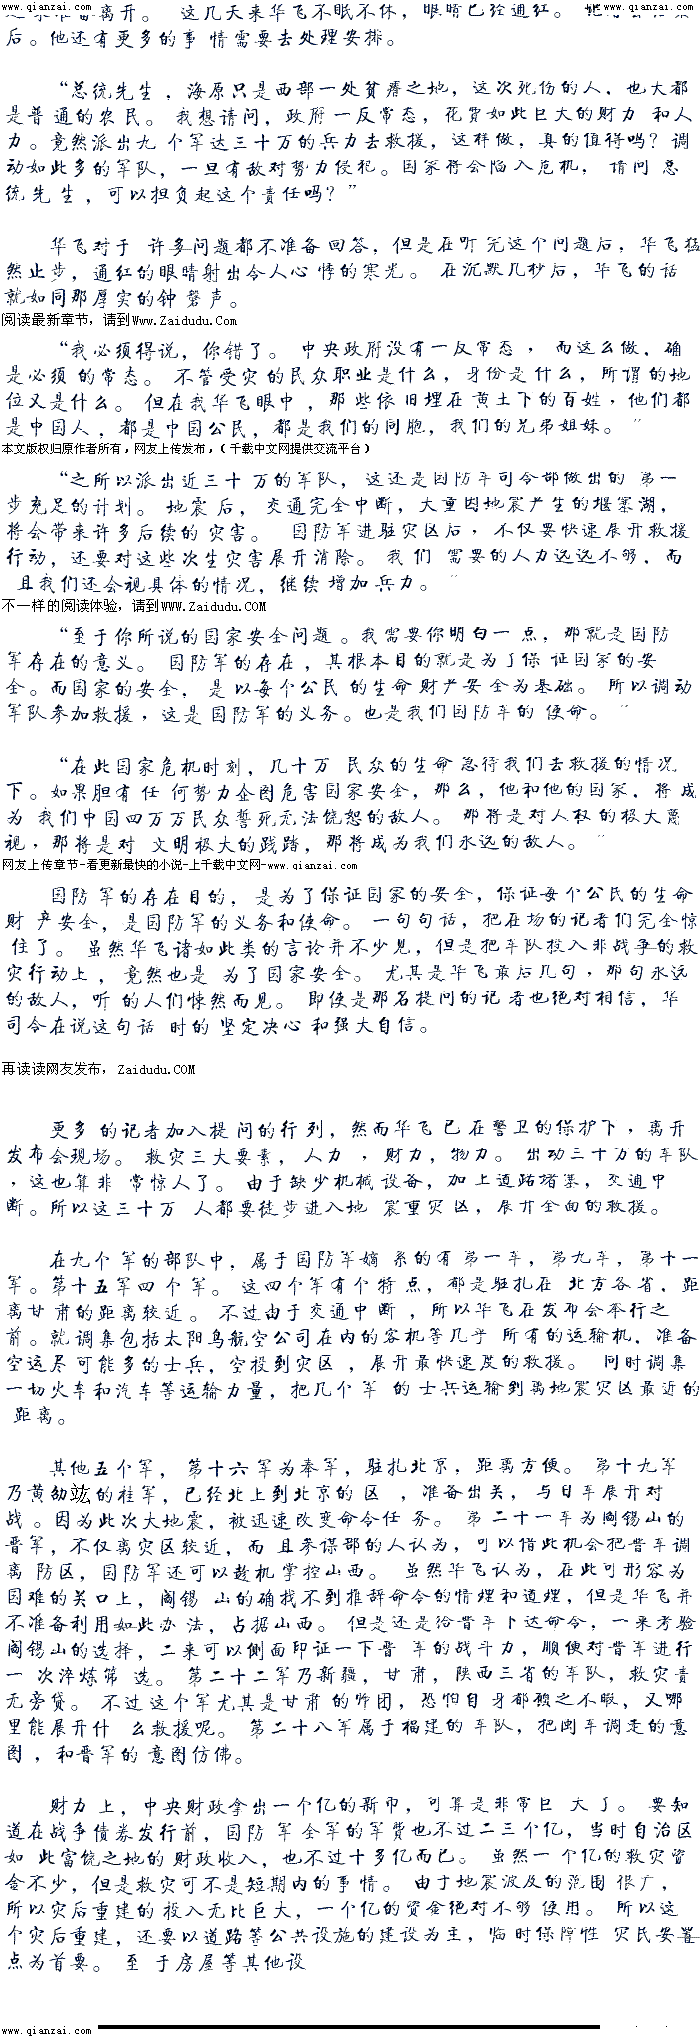 www.qianzai.com www.qianzai.com
离开。 这几天来华飞不眠不休，眼睛已经通红。
后。他还有更多的事 情需要去处理安排。
“总统先生，海原只是西部一处贫瘠之地，这次死伤的人，也大都
是普 通的农民。 我想请问，政府一反常态，花费如此巨大的财力 和人
力。竟然派出九 个军达三十万的兵力去救援，这样做，真的值得吗？调
动如此多的军队，一旦有敌对势力侵犯。国家将会陷入危机， 请问 总
统先 生 ，可以担负起这个责任吗？”
华飞对于 许多问题都不准备 回答，但是在听 完这个问题后，华飞猛
然止步，通红的眼睛射出令人心 悸的寒光。 在沉默几秒后，华飞的话
就如同那厚实的钟 磬声。
阅读最新章节，请到Www.Zaidudu.Com
“我必须得说，你错了。 中央政府没有一反常态 ， 而这么做，确
是必须 的常态。 不管受灾的民众职业是什么，身份是 什么，所谓的地
位又是什么。 但在我华飞眼中 ，那些依旧埋在黄土下的百姓，他们都
是中国人 ，都是中国公民，都是我们的同胞，我们的兄弟姐妹。 ”
本文版权归原作者所有，网友上传发布，（千载中文网提供交流平台）
“之所以派出近三十 万的军队， 这还是国防军司令部做出的 第一
步充足的计划。 地震 后， 交通完全中断，大量因地震产生的堰塞湖，
将会带来许多后续的 灾害。 国防军进驻灾区后， 不仅要快速展开救援
行动，还要对这些次生灾害展开消除。 我 们 需要的人力远远不够，而
且我们还会视具体的情况，继续 增加 兵力。 ”
不一样的阅读体验，请到WWW.Zaidudu.COM
“至于你所说的国家安全问题 。我 需要你明白一 点，那就是国防
军存在的意义。 国防军的存在 ，其根本目的就是为了保 证国家的安
全。而国家的安全， 是 以每个公民 的生命 财产安 全为基础。 所以调动
军队参加救援，这是 国防军的义务。也是我们国防军的 使命。 ”
“在此国家危机时刻，几十万 民众的生命 急待我们去救援的情况
下。如果胆有 任 何势力企图危害国家安全，那么，他和他的国家，将 成
为 我们中国四万万民众誓死无法饶恕的敌人。 那将是对人权 的极大蔑
视，那将是对 文明极大的践踏，那将成为我们永远的敌人。 ”
网友上传章节-看更新最快的小说-上千载中文网-www.qianzai.com
国防 军的存在目的， 是为了保证国家的安全，保证每个公民的生命
财 产安全，是国防军的义务和使命。 一句句话，把在场的记者们完全惊
住了。 虽然华飞诸如此类的言论并不少见，但是把军队投入非战争的救
灾行动上 ， 竟然也是 为了国家安全。 尤其是华飞最后几句，那句永远
的敌人，听 的人们悚然而见。 即使是那名提问的记 者也绝对相信，华
司令在说这句话 时的 坚定决心 和强大自信。
再读读网友发布， Zaidudu.COM
更多 的记者加入提 问的行 列，然而华飞 已 在警卫的保护下，离开
发布会现场。 救灾三大要素，人力 ，财力，物力。 出动三十万的军队
，这也算非 常惊人了。 由于缺少机械设备，加上道路堵塞，交通中
断。所以这三十万 人都要徒步进入地 震重灾区，展开全面的救援。
在九个 军的部队中，属于国防军嫡 系的有 第一 军，第九军，第十一
军。第十五军四 个军。 这四个军有个 特 点，都是驻扎在 北方各省，距
离甘 肃的距离较近。 不过由于交通中断 ，所以华飞在发布会举行之
前。就调集包括太阳鸟航空公司在内的客机等几乎 所有的运输机，准备
空运尽 可能多的士兵，空投到灾区 ，展开最快速度的救援。 同时调集
一切火车和汽车等运输力量，把几个军 的 士兵运输到离地震灾区最近的
距离。
其他五个军， 第十六军为奉军，驻扎北京，距离方便。 第十九军
乃黄劭竑的桂军，已经北上到北京的 区 ，准备出关，与日军展开对
战 。因为此次大地震，被迅速改变命令任 务。 第二十一军为阎锡山的
晋军，不仅离灾区较近，而 且参谋部的人认为，可以借此机会把晋军调
离 防区，国防军还可以趁机 掌控山西。 虽然华飞认为，在此可形容为
国难的关口上，阎锡 山的确找不到推辞命令的情理和道理，但是华飞并
不准备利用如此办 法，占据山西。 但是还是给晋军下达命令，一来考验
阎锡山的选择，二来可以侧面印证一下晋 军的战斗力，顺便对晋军进行
一 次淬炼筛 选。 第二十二军乃新疆，甘肃，陕西三省的军队，救灾责
无旁贷。 不过 这个军尤其是甘肃 的师团，恐怕自 身都顾之不暇，又哪
里能展开什 么救援呢。 第二十八军属于福建的 军队，把闽军调走的意
图 ，和晋军的 意图仿佛。
财力 上，中央财政拿出一个亿的新币，可算是非常巨 大了。 要知
道在战争债券发行前，国防 军 全军的军费也不过二三个亿，当时自治区
如 此富饶之地的 财政收入，也不过十多亿而已。 虽然一 个亿的救灾资
金不少，但是救灾可不是短期内的事情。 由于地震波及的范围 很广，
所以灾后重建的 投入无比巨大，一个亿的资金绝对不够 使用。 所以这
个灾后重建，还要以道路等公共设施的建设为主，临时保障性 灾民安置
点为首要。 至 于房屋等其他设
www.qianzai.com